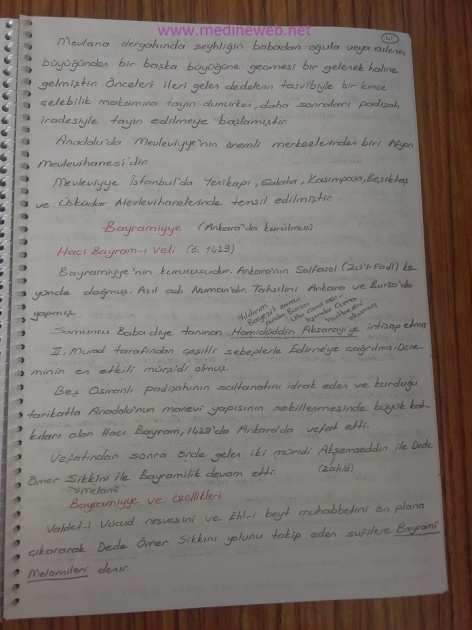 www.medineweb.net
Mevlana dergahında şeyhliğin babadan oğula veya ailenin
büyüğünden bir başka büyüğüne geçmesi bir gelenek haline
gelmiştir. Önceleri ileri gelen dedelerin tasvibiyle bir kimse
çelebilik makamına tayin olunurken, daha sonraları padişah
iradesiyle tayin edilmeye başlamıştır.
Anadolu'da Mevleviyye'nin önemli merkezlerinden biri Afyon
Mevlevihanesi'dir.
Mevleviyye İstanbul'da Yenikapı, Galata, Kasımpaşa, Beşiktaş
ve Üsküdar Mevlevihanelerinde temsil edilmiştir.
Bayramiyye (Ankara'da kurulmuş)
Hacı Bayram-ı Veli (ö. 1429)
Bayramiyye'nin kurucusudur. Ankara'nın Solfasol (Zü'l-Fadl) kö-
yünde doğmuş. Asıl adı Numan'dır. Tahsilini Ankara ve Bursa'da
yapmış.
Yıldırım
Bayezit
Bursa
Ulu cami
Cuma
hutbesini
okumuş
Somuncu Baba diye tanınan Hamidüddin Aksarayi'ye intisap etmiş
II. Murad tarafından çeşitli sebeplerle Edirne'ye çağrılmış. Döne-
minin en etkili mürşidi olmuş.
Beş Osmanlı padişahının saltanatını idrak eden ve kurduğu
tarikatla Anadolu'nun manevi yapısının şekillenmesinde büyük kat-
kıları olan Hacı Bayram, 1429'da Ankara'da vefat etti.
Vefatından sonra önde gelen iki müridi Akşemseddin ile Dede
(zahid)
Ömer Sıkkîni ile Bayramilik devam etti.
melami
Bayramiyye ve özellikleri.
Vahdet-i Vücud neşvesini ve Ehl-i beyt muhabbetini ön plana
çıkararak Dede Ömer Sıkkini yolunu takip eden sufilere Bayrami
Melamileri denir.